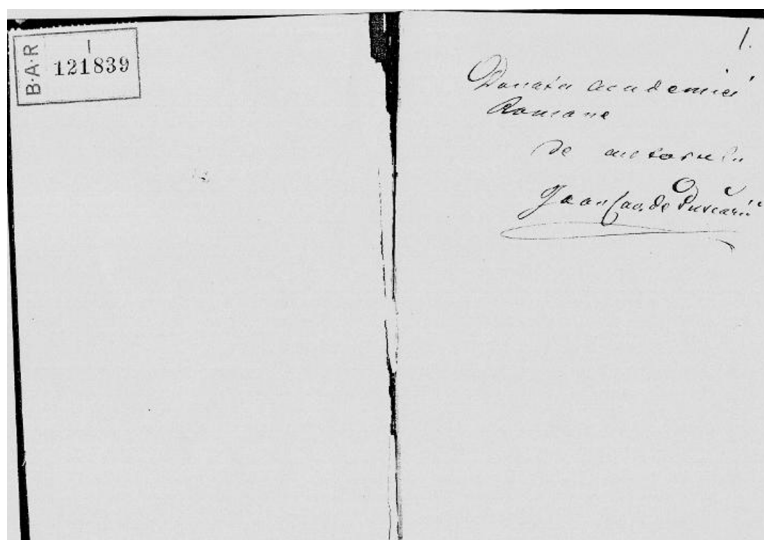 B·A·R
I
121839
1.
Donatu academiei
Romane
de autorulu
Joan Cav. de Puscariu